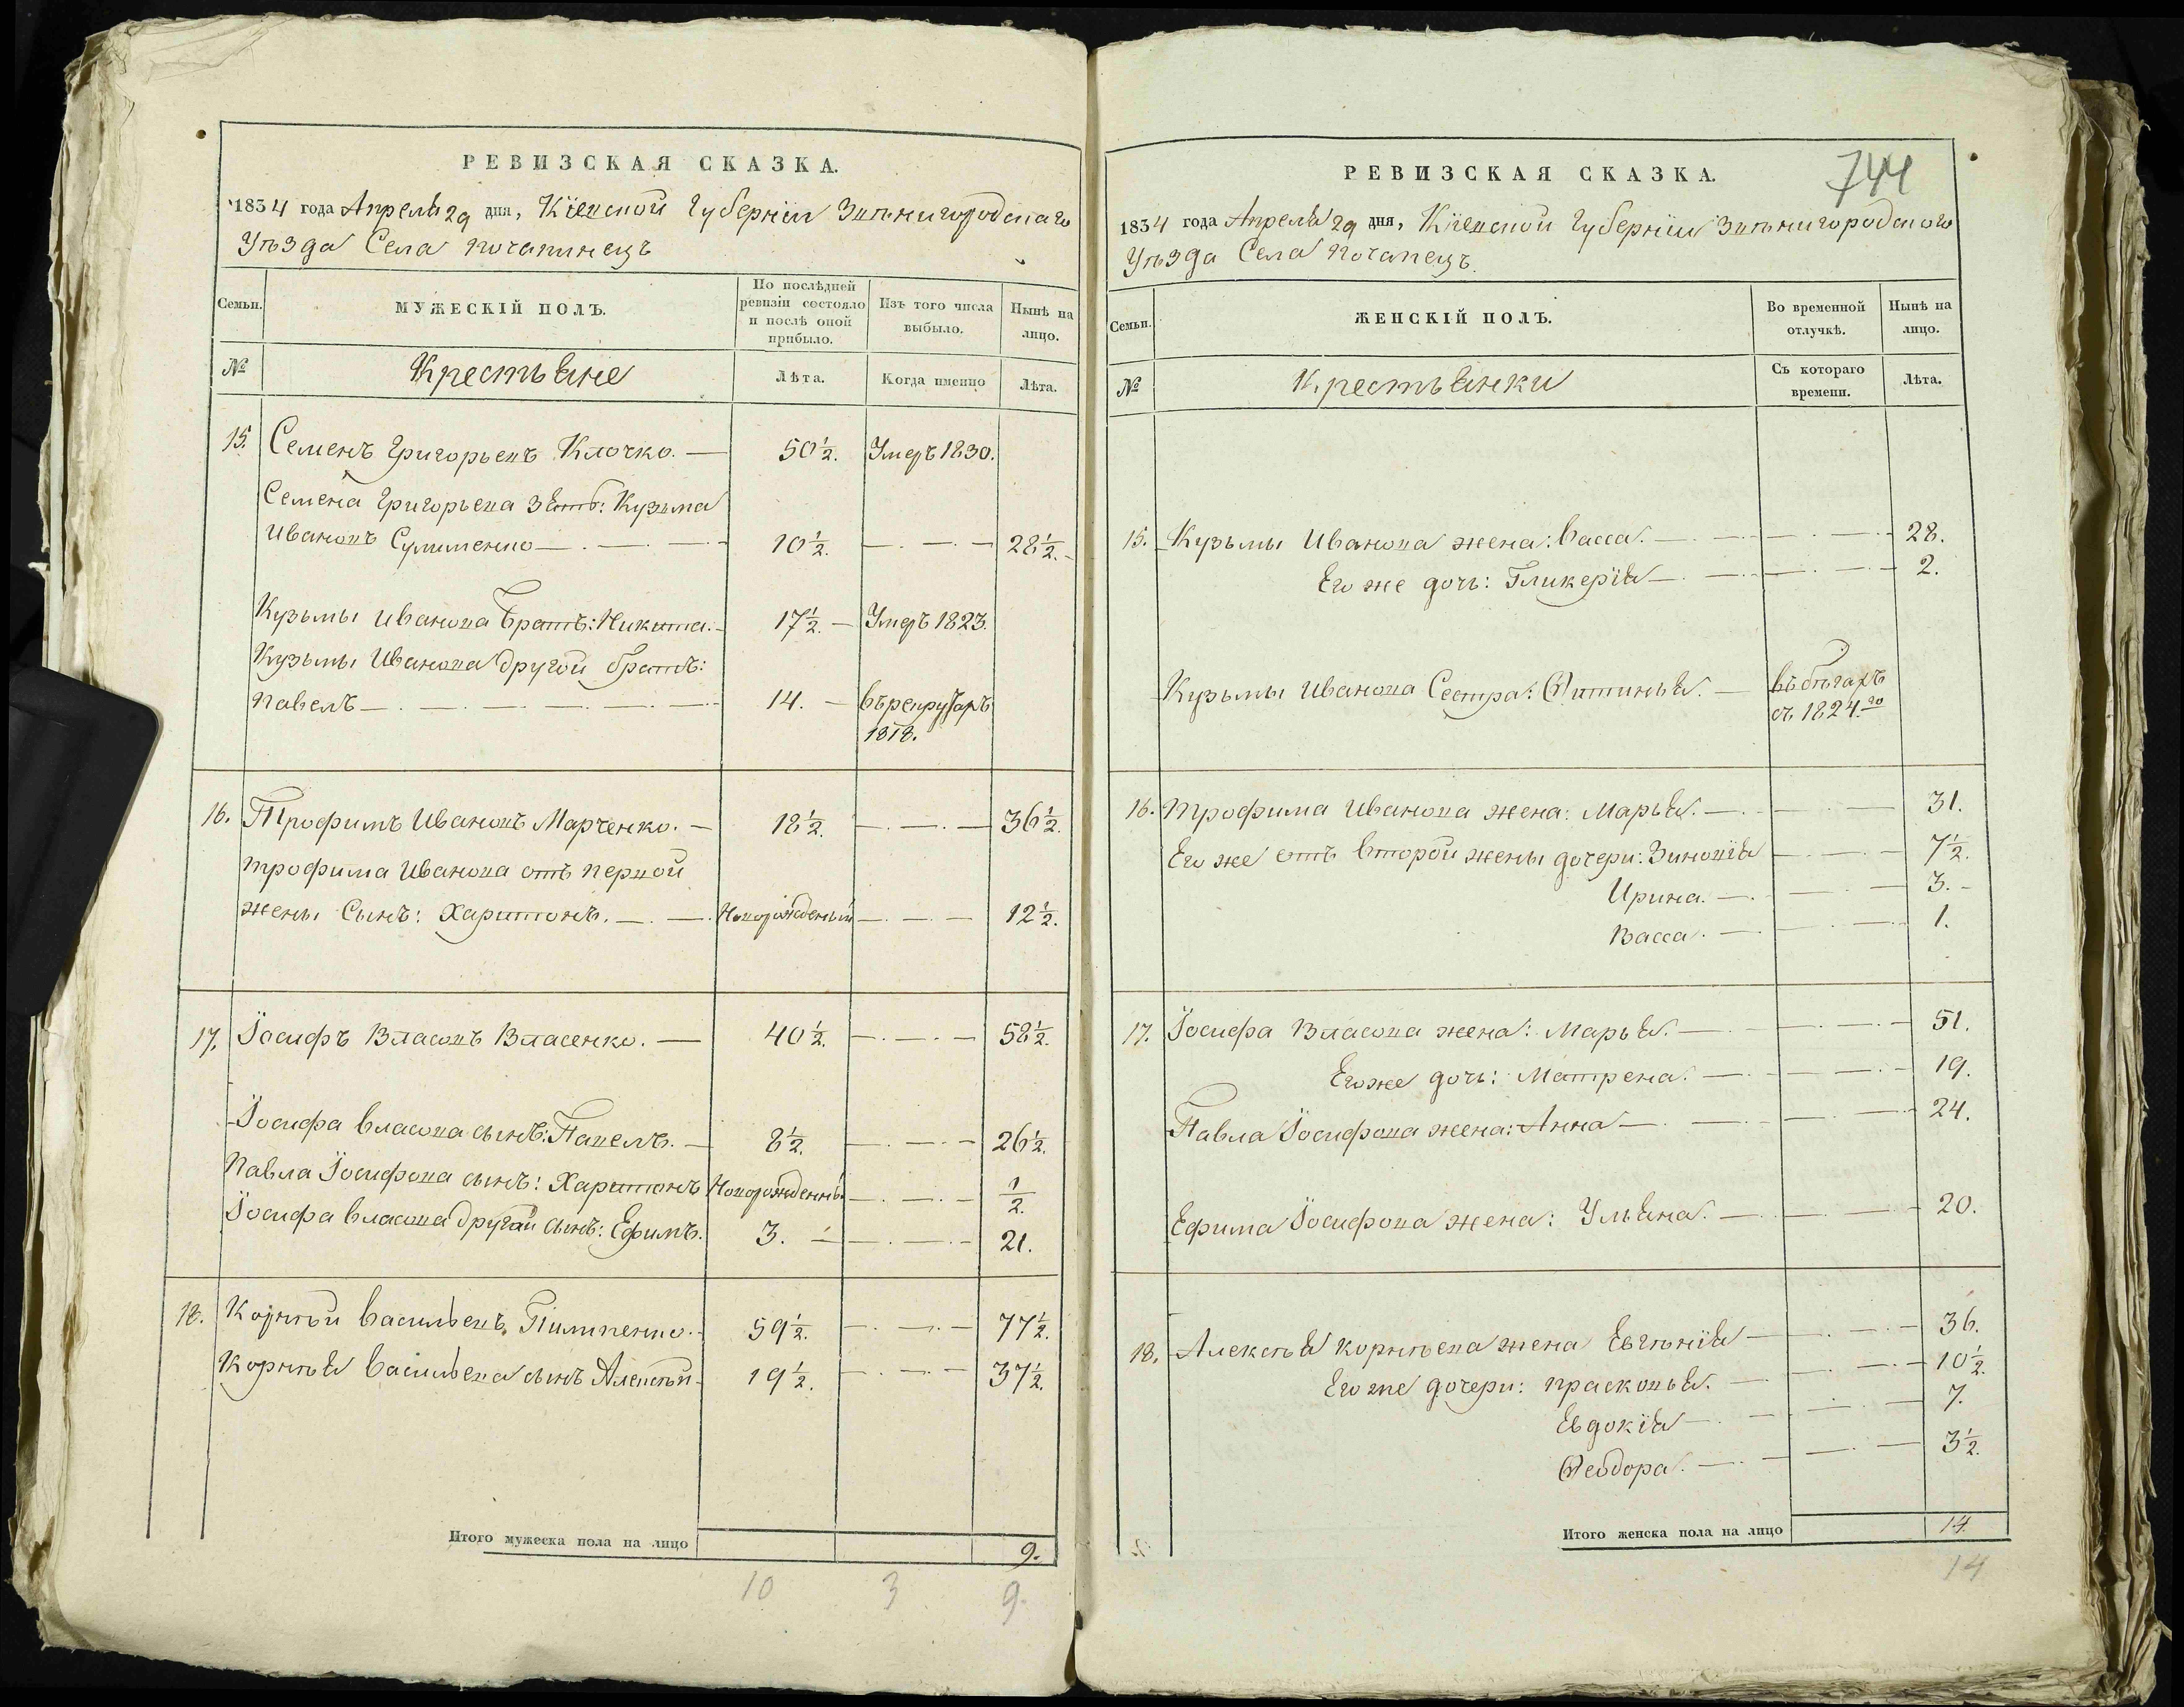 РЕВИЗСКАЯ СКАЗКА.
1834 года Апреля 29 дня, Кіевской Губерніи Звѣнигородскаго
Уѣзда Села Почапинецъ
Семьи.
МУЖЕСКІЙ ПОЛЪ.
По послѣдней ревизіи состояло и послѣ оной прибыло.
Изъ того числа выбыло.
Нынѣ на лицо.
№
Крестьяне
Лѣта.
Когда именно
Лѣта.
15. Семенъ Григорьевъ Клочко. — 50½. Умеръ 1830.
Семена Григорьева зять: Кузьма
Ивановъ Сулименко — 10½. — 28½.
Кузьмы Иванова братъ: Никита. — 17½. — Умеръ 1823.
Кузьмы Иванова другой братъ:
Павелъ — 14. — въ рекрутахъ
1818.
16. Трофимъ Ивановъ Марченко. — 18½. — 36½.
Трофима Иванова отъ первой
жены сынъ: Харитонъ. — Новорожденый — 12½.
17. Іосифъ Власовъ Власенко. — 40½. — 58½.
Іосифа Власова сынъ: Павелъ. — 8½. — 26½.
Павла Іосифова сынъ: Харитонъ Новорожденый — ½.
Іосифа Власова другой сынъ: Ефимъ. 3. — 21.
18. Корнѣй Васильевъ 59½. — 77½.
Корнѣя Васильева сынъ Алексѣй 19½. — 37½.
Итого мужеска пола на лицо 9.
10 3 9.
744
РЕВИЗСКАЯ СКАЗКА.
1834 года Апреля 29 дня, Кіевской Губерніи Звѣнигородского
Уѣзда Села Почапецъ.
Семьи.
ЖЕНСКІЙ ПОЛЪ.
Во временной отлучкѣ.
Нынѣ на лицо.
№
Крестьянки
Съ котораго времени.
Лѣта.
15. Кузьмы Иванова жена: Васса. — 28.
Его же дочь: Гликерія — 2.
Кузьмы Иванова Сестра: Ѳитинья. — въ бѣгахъ
съ 1824.го
16. Трофима Иванова жена: Марья. — 31.
Его же отъ второй жены дочери: Зиновія — 7½.
Ирина. — 3.
Васса. — 1.
17. Іосифа Власова жена: Марья. — 51.
Его же дочь: Матрена. — 19.
Павла Іосифова жена: Анна — 24.
Ефима Іосифова жена: Ульяна. — 20.
18. Алексѣя Корнѣева жена Евгѣнія — 36.
Его же дочери: Прасковья. — 10½.
Евдокія — 7.
Ѳеодора. — 3½.
Итого женска пола на лицо 14.
14